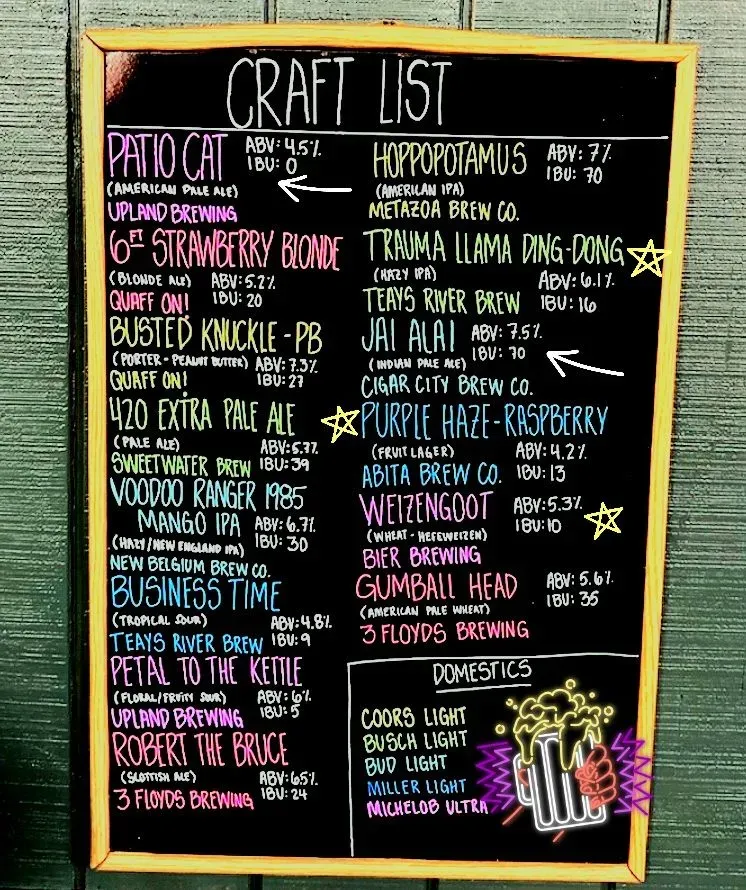 CRAFT LIST
PATIO CAT ABV: 4.5%
IBU: 0
(AMERICAN PALE ALE)
UPLAND BREWING
6FT STRAWBERRY BLONDE
(BLONDE ALE) ABV: 5.2%
QUAFF ON! IBU: 20
BUSTED KNUCKLE - PB
(PORTER - PEANUT BUTTER) ABV: 7.3%
QUAFF ON! IBU: 27
420 EXTRA PALE ALE
(PALE ALE) ABV: 5.7%
SWEETWATER BREW IBU: 39
VOODOO RANGER 1985
MANGO IPA ABV: 6.7%
(HAZY/NEW ENGLAND IPA) IBU: 30
NEW BELGIUM BREW CO.
BUSINESS TIME
(TROPICAL SOUR) ABV: 4.8%
TEAYS RIVER BREW IBU: 9
PETAL TO THE KETTLE
(FLORAL/FRUITY SOUR) ABV: 6%
UPLAND BREWING IBU: 5
ROBERT THE BRUCE
(SCOTTISH ALE) ABV: 6.5%
3 FLOYDS BREWING IBU: 24
HOPPOPOTAMUS ABV: 7%
IBU: 70
(AMERICAN IPA)
METAZOA BREW CO.
TRAUMA LLAMA DING-DONG
(HAZY IPA) ABV: 6.1%
TEAYS RIVER BREW IBU: 16
JAI ALAI ABV: 7.5%
IBU: 70
(INDIAN PALE ALE)
CIGAR CITY BREW CO.
PURPLE HAZE - RASPBERRY
(FRUIT LAGER) ABV: 4.2%
ABITA BREW CO. IBU: 13
WEIZENGOOT ABV: 5.3%
IBU: 10
(WHEAT - HEFEWEIZEN)
BIER BREWING
GUMBALL HEAD ABV: 5.6%
IBU: 35
(AMERICAN PALE WHEAT)
3 FLOYDS BREWING
DOMESTICS
COORS LIGHT
BUSCH LIGHT
BUD LIGHT
MILLER LIGHT
MICHELOB ULTRA